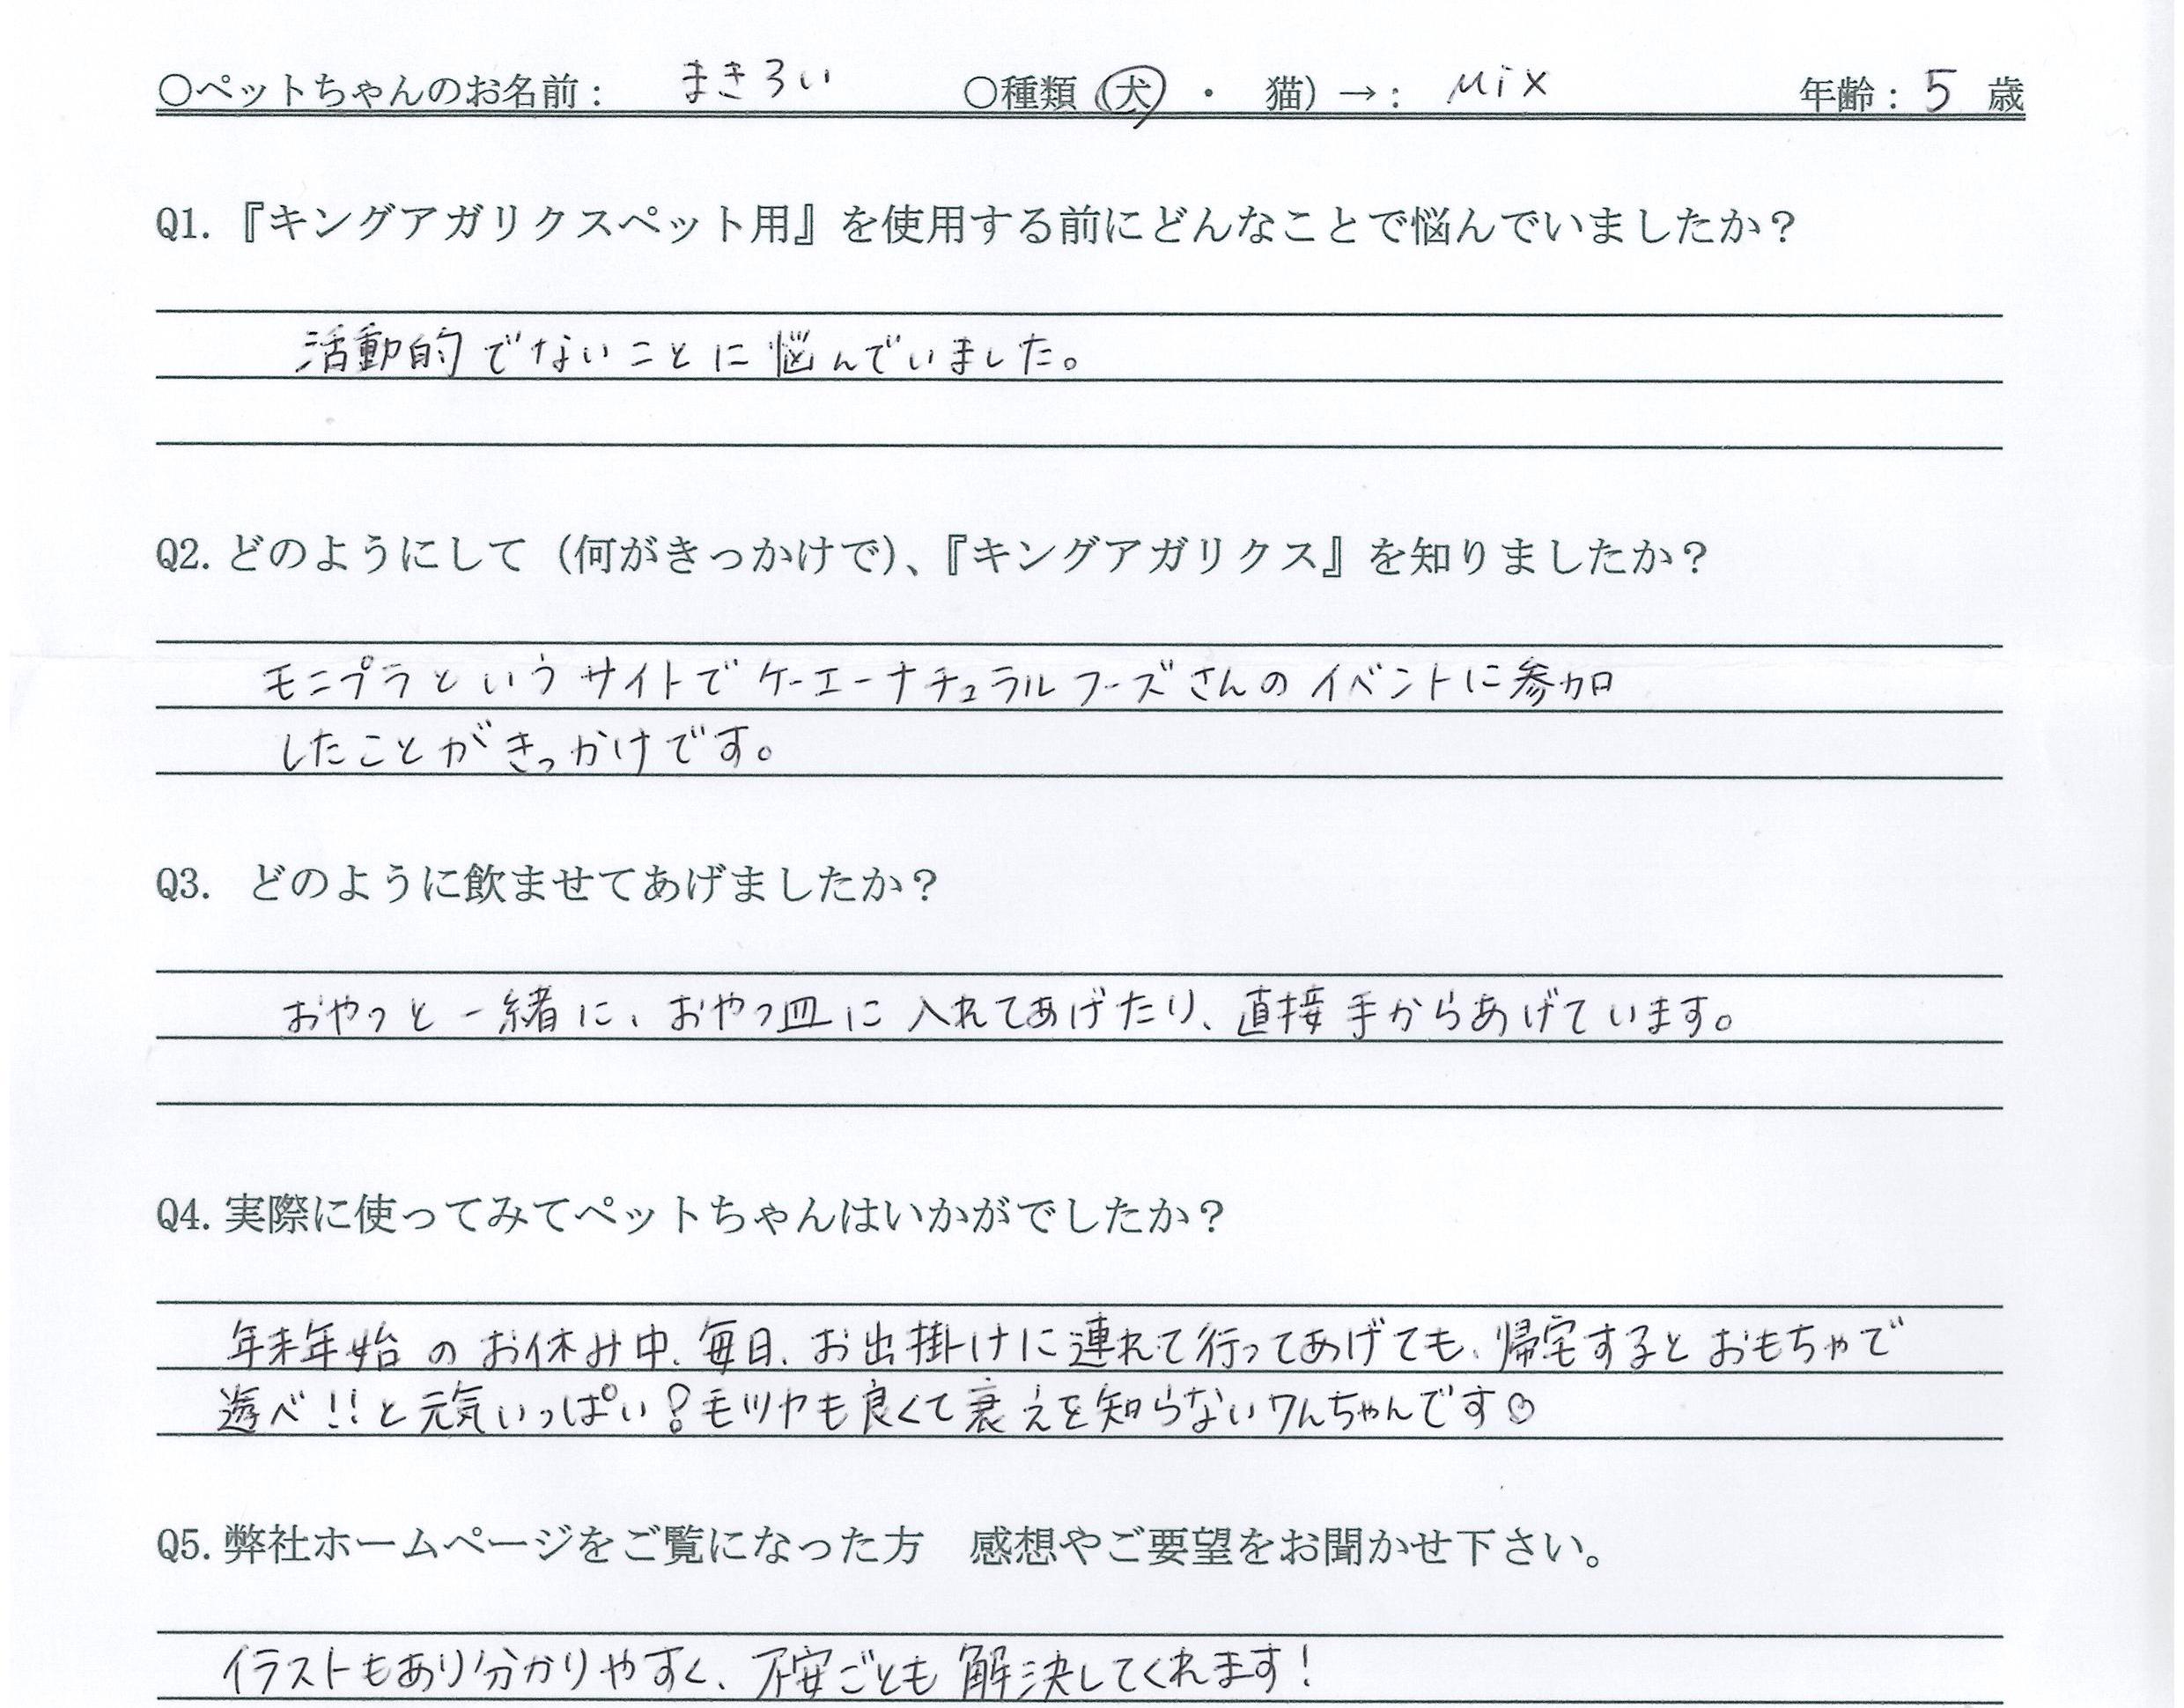 ○ペットちゃんのお名前： まきろい ○種類（犬・猫）→： MiX 年齢：5 歳
Q1.『キングアガリクスペット用』を使用する前にどんなことで悩んでいましたか？
活動的でないことに悩んでいました。
Q2.どのようにして（何がきっかけで）、『キングアガリクス』を知りましたか？
モニプラというサイトでケーエーナチュラルフーズさんのイベントに参加
したことがきっかけです。
Q3. どのように飲ませてあげましたか？
おやつと一緒に、おやつ皿に入れてあげたり、直接手からあげています。
Q4.実際に使ってみてペットちゃんはいかがでしたか？
年末年始のお休み中、毎日、お出掛けに連れて行ってあげても、帰宅するとおもちゃで
遊べ!!と元気いっぱい!毛ツヤも良くて衰えを知らないワんちゃんです♡
Q5.弊社ホームページをご覧になった方　感想やご要望をお聞かせ下さい。
イラストもあり分かりやすく、不安ごとも解決してくれます!